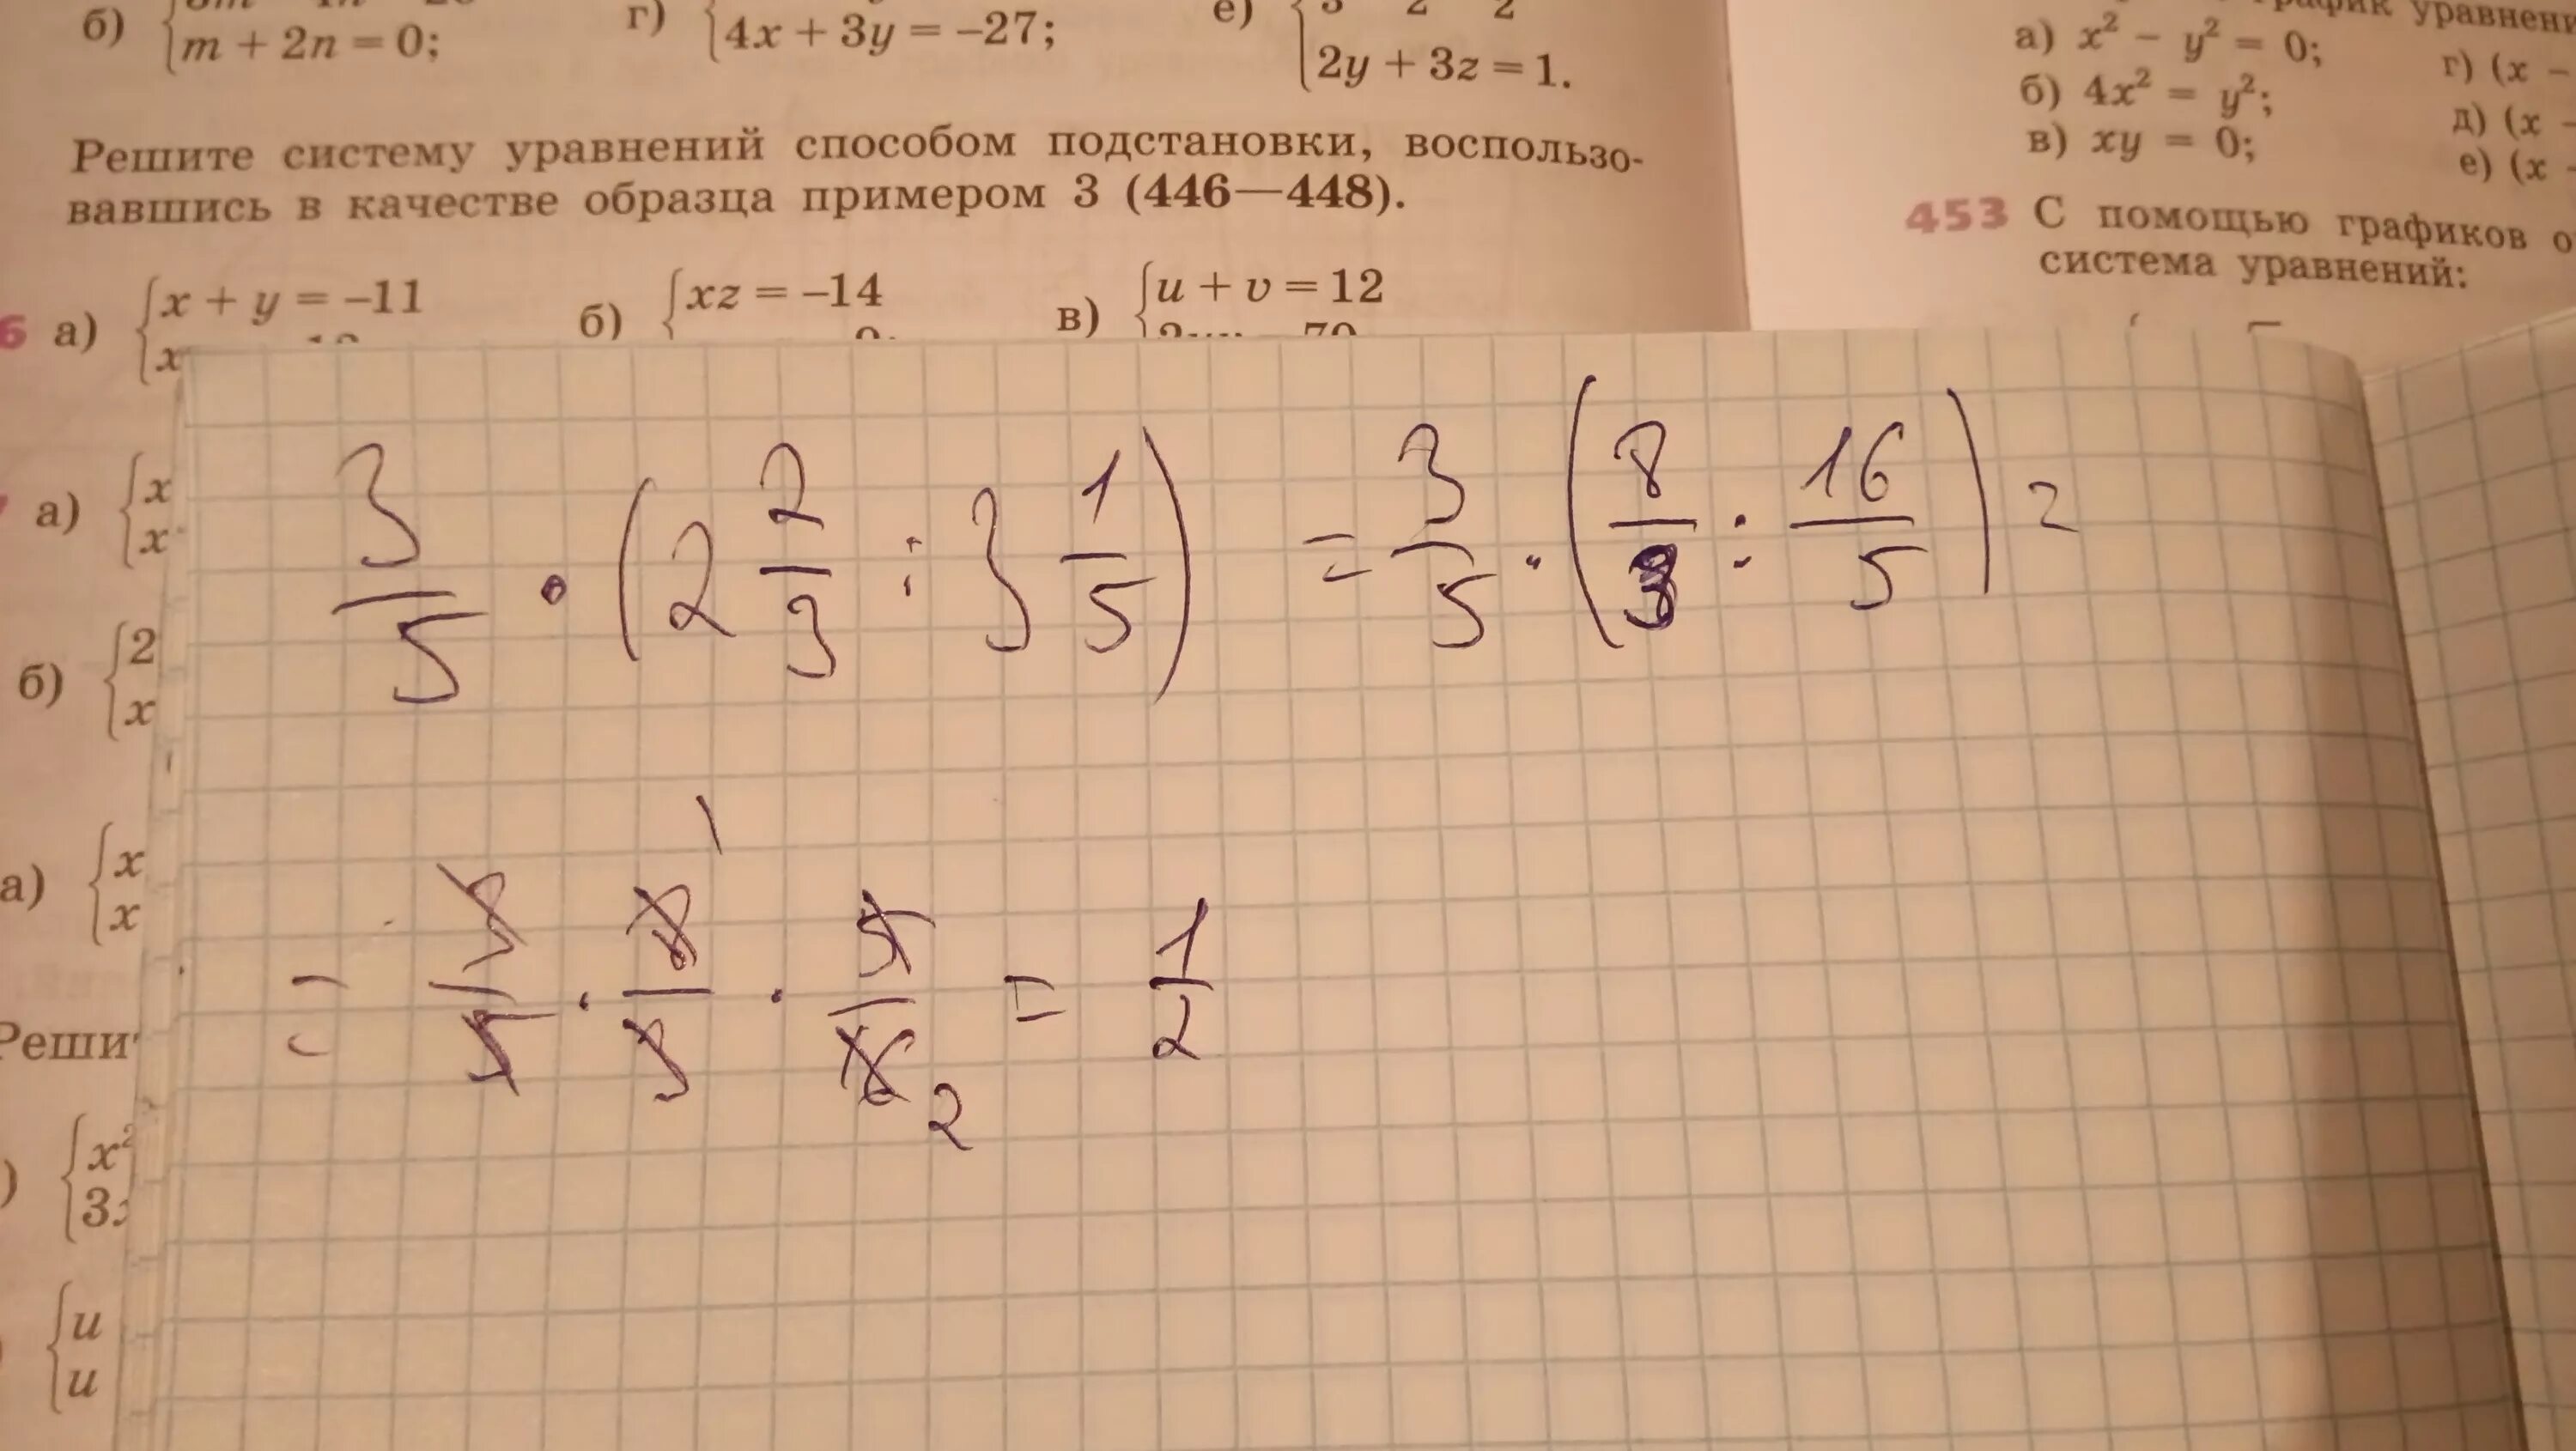 б) m + 2n = 0;
г) 4x + 3y = –27;
е) 2y + 3z = 1.
Решите систему уравнений способом подстановки, воспользо-
вавшись в качестве образца примером 3 (446—448).
6 а) { x + y = –11
x
б) { xz = –14
в) { u + v = 12
а) { x
x
б) { 2
x
а) { x
x
Реши
) { x²
3
{ u
u
уравнени
а) x² – y² = 0;
б) 4x² = y²;
в) xy = 0;
г) (x –
д) (x –
е) (x –
453 С помощью графиков о
система уравнений:
3/5 · (2 2/3 : 3 1/5) = 3/5 · (8/3 : 16/5) =
= 3/5 · 8/3 · 5/16 = 1/2
1
2